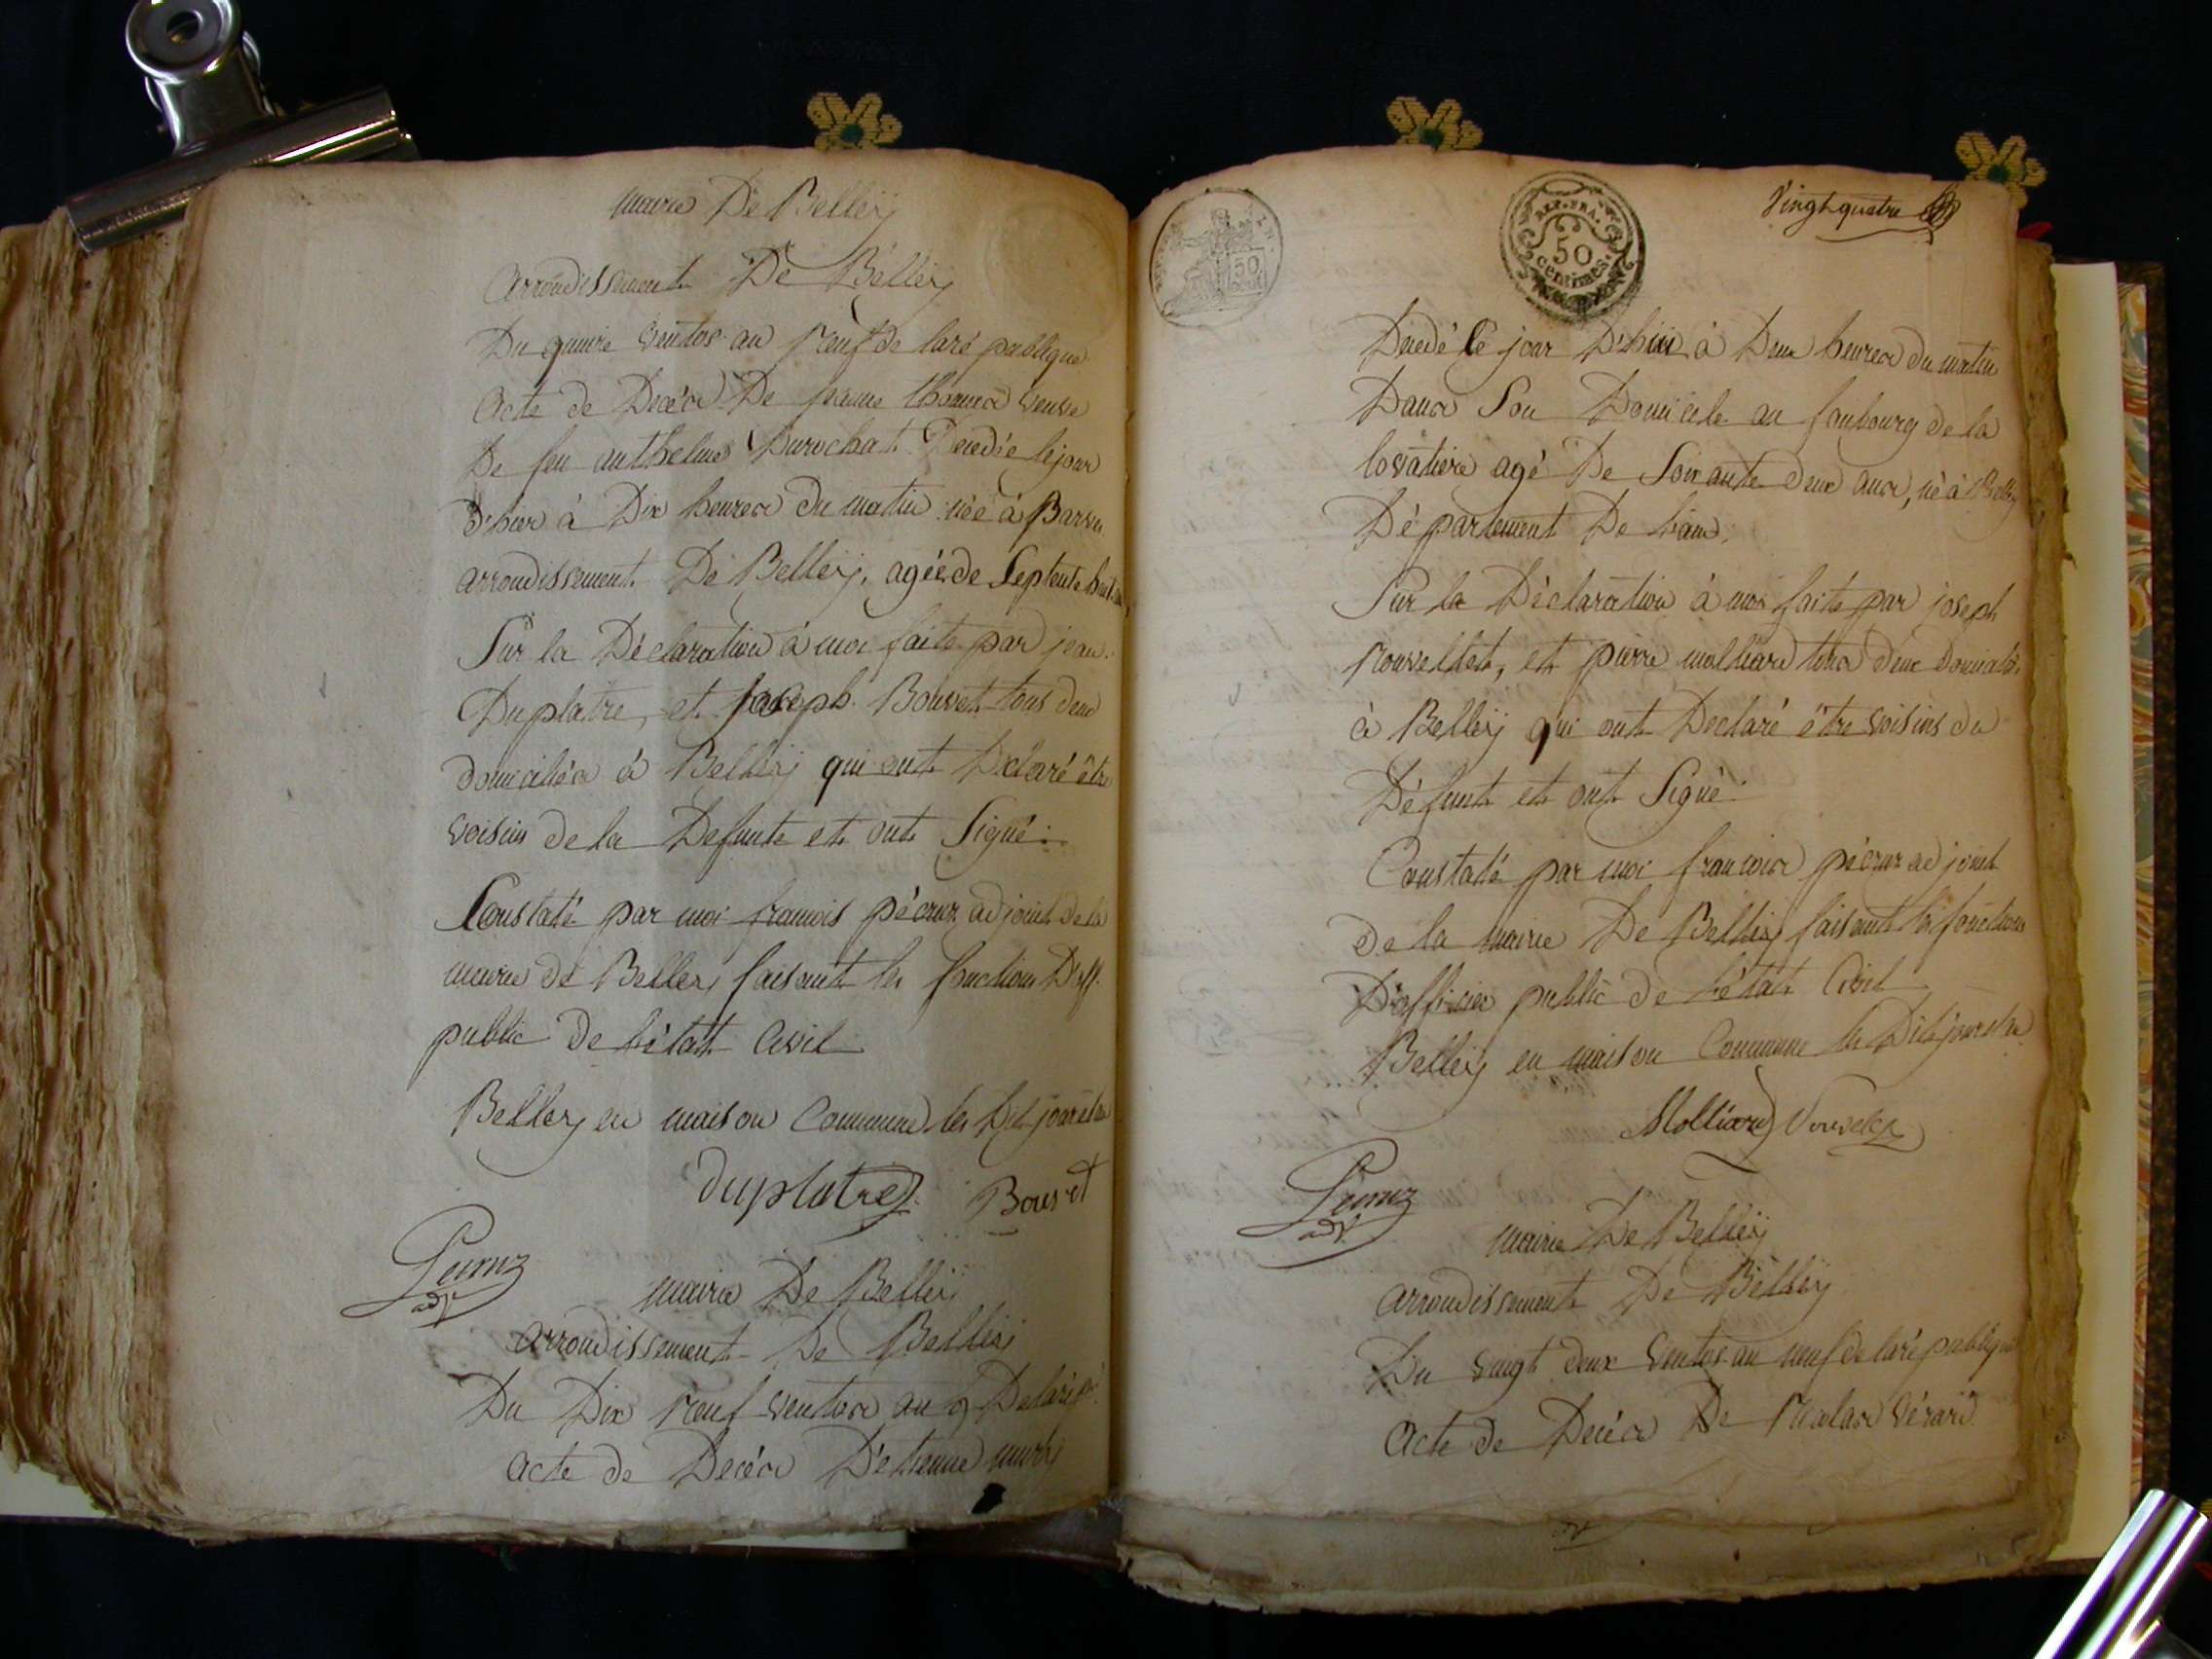 mairie De Belleÿ
arrondissement De Belleÿ
Du quinze ventos an neuf de laré publique
Acte de Decéa De jeanne thomea veuve
De feu anthelme Durochat Decedée le jour
d'hier à Dix heures du matin née à
arrondissement De Belleÿ, agée de Septente huit
Sur la Déclaration à moi faite par jean
Duplatre, et joseph Bouvet tous deux
domiciliés à Belleÿ qui ont Déclaré être
voisin de la Defunte et ont Signé
Constaté par moi francois pécruz adjoint de la
mairie de Belleÿ faisant les fonctions D'off.
public De l'état Civil
Belleÿ en maison Commune les Dit jour et an
duplatre Bouvet
adj.
mairie De Belleÿ
arrondissement De Belleÿ
Du Dix neuf ventos an 9 De laré p.
Acte de Decéa D'etienne
REP. FRA.
50
centimes.
50
Vingt quatre
Décedé le jour D'hier à Deux heures du matin
Dans Son Domicile au faubourg de la
agé De Soixante deux ans, né à Belleÿ
Département De l'ain
Sur la Déclaration à moi faite par joseph
nouvellet, et pierre molliard tous deux domiciliés
à Belleÿ qui ont Declaré être voisins du
Défunt et ont Signé
Constaté par moi francois pécruz adjoint
de la mairie De Belleÿ faisant les fonctions
D'officier public de l'état Civil
Belleÿ en maison Commune les Dits jour et an
Molliard Nouvelet
adj.
mairie De Belleÿ
arrondissement De Belleÿ
Du vingt deux ventos an neuf de laré publique
Acte de Decéa De nicolas Vérard